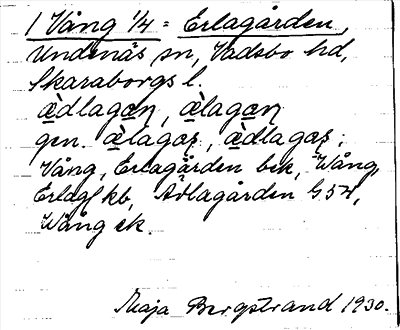 1 Vång 1/4 = Erlagården,
Undenäs sn, Vadsbo hd,
Skaraborgs l.
æ̀dlagaɳ, æ̀lagaɳ
gen. æ̀lagaʂ, æ̀dlagaʂ;
Vång, Erlagården bek, Wång,
Erlag kb, Adlagården G 54,
Wång ek.
Maja Bergstrand 1930.